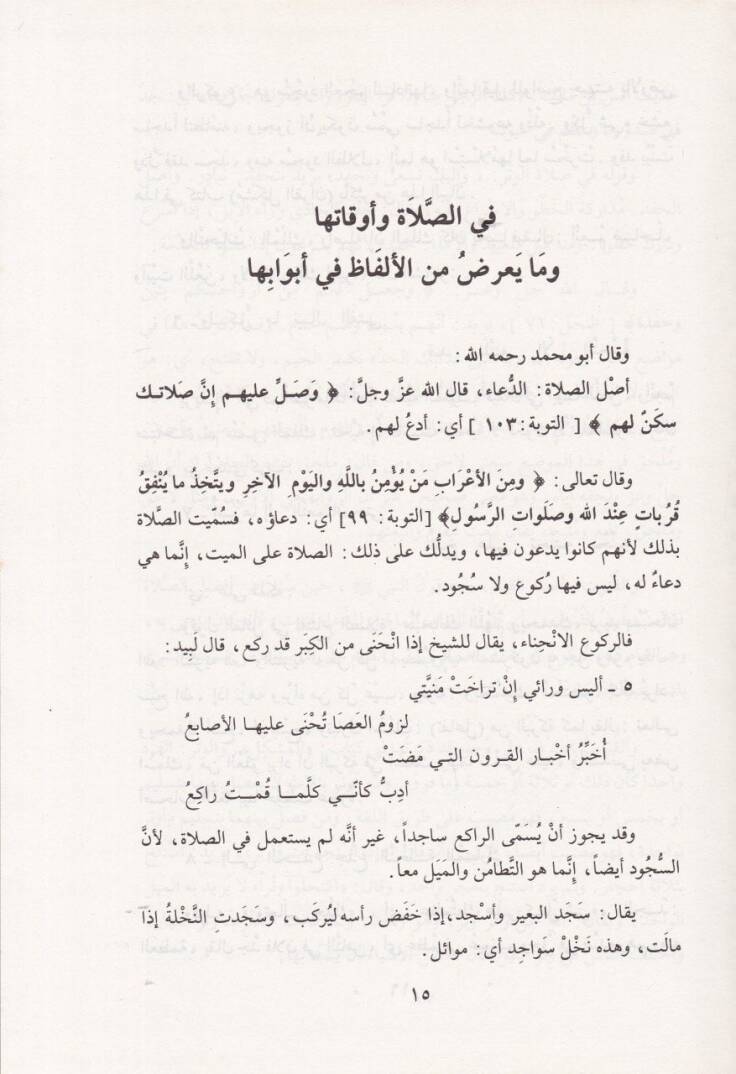 في الصَّلاَة وأوقاتها
ومَا يَعرضُ من الألفَاظ في أبوَابِها
وقال أبو محمد رحمه الله:
أصْل الصلاة: الدُّعاء، قال الله عزَّ وجلَّ: ﴿ وَصَـلِّ عليهـم إنَّ صَلاتـك
سكَنٌ لهم ﴾ [ التوبة: ١٠٣ ] أي: أدعُ لهم.
وقال تعالى: ﴿ ومِنَ الأعْرَابِ مَنْ يُؤْمِنُ باللَّهِ واليَوْمِ الآخِرِ ويتَّخِذُ ما يُنْفِقُ
قُرُباتٍ عِنْدَ الله وصَلَواتِ الرَّسُولِ﴾ [التوبة: ٩٩] أي: دعاؤه، فسُمّيت الصَّلاة
بذلك لأنهم كانوا يدعون فيها، ويدلُّك على ذلك: الصلاة على الميت، إنَّما هي
دعاءٌ له، ليس فيها رُكوع ولا سُجُود.
فالركوع الانْحِناء، يقال للشيخ إذا انْحَنَى من الكِبَر قد ركع، قال لَبِيد:
٥ ـ أليس ورائي إنْ تراخَتْ مَنيَّتي
لزومُ العَصَا تُحْنَى عليهـا الأصابـعُ
أُخَبِّرُ أخْبـار القرون التـي مَضَـتْ
أدِبُّ كأنّـي كلَّمـا قُمْـتُ راكِـعُ
وقد يجوز أنْ يُسَمّى الراكع ساجداً، غير أنَّه لم يستعمل في الصلاة، لأنَّ
السُّجُود أيضاً، إنَّما هو التَّطامُن والمَيَل معاً.
يقال: سَجَد البعير وأسْجد،إذا خَفَض رأسه ليُركَب، وسَجَدتِ النَّخْلةُ إذا
مالَت، وهذه نَخْلْ سَواجِد أي: موائل.
١٥